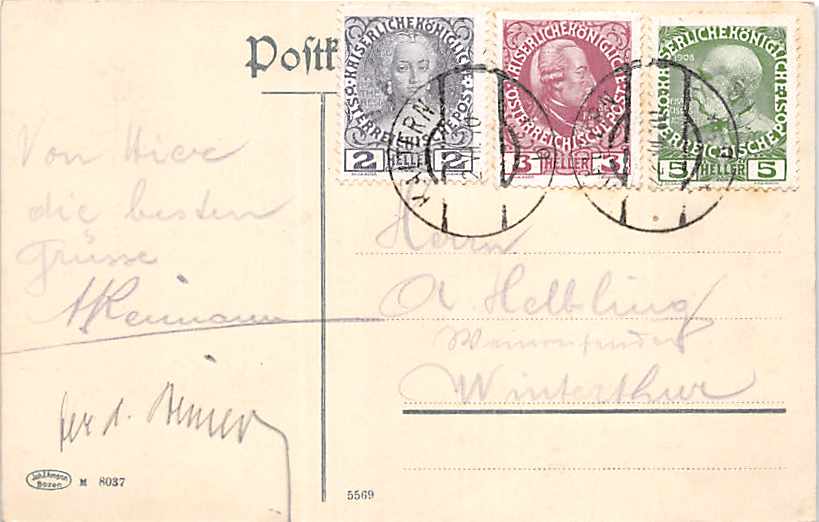 Postk
KAISERLICHE KÖNIGLICHE
ÖSTERREICHISCHE POST
2 2
KAISERLICHE KÖNIGLICHE
ÖSTERREICHISCHE POST
3 HELLER 3
1908
KAISERLICHE KÖNIGLICHE
ÖSTERREICHISCHE POST
5 HELLER 5
KALTERN
Von Hier
die besten
Grüsse
A Reimann
Herrn
A Helbling
Winterthur
Joh. F. Amonn
Bozen
M 8037
5569